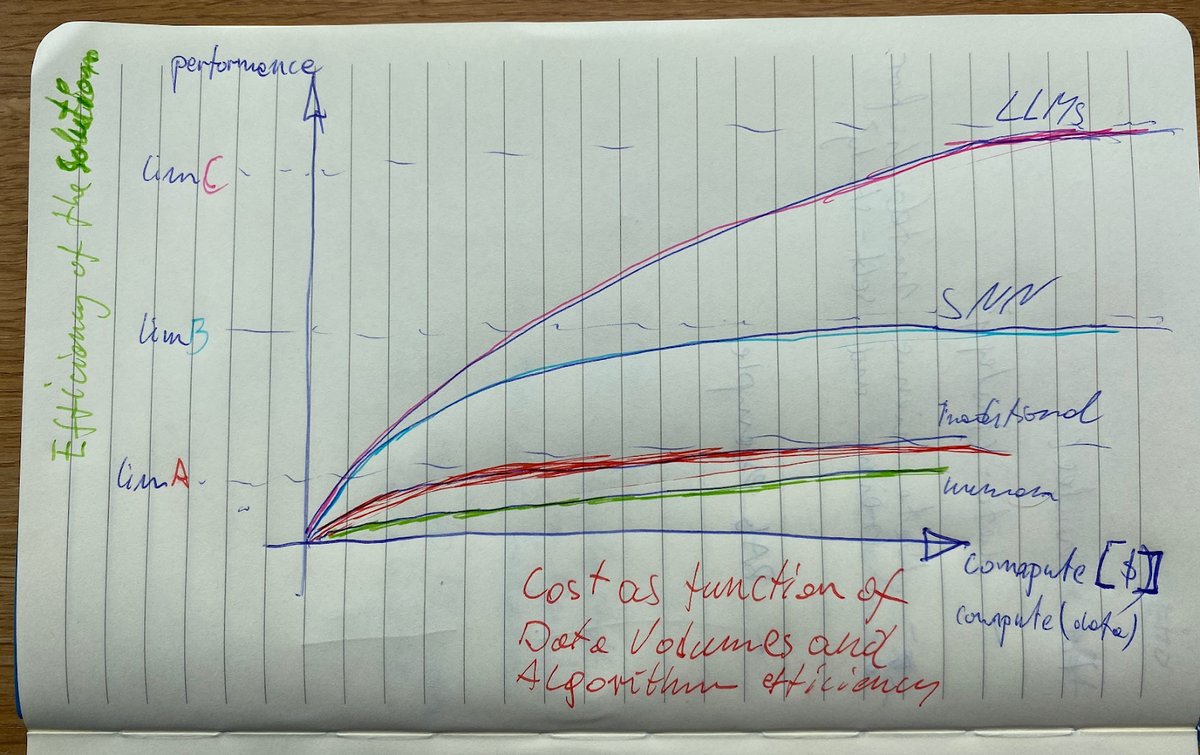 performence
Efficiency of the Solution
LLMs
lim C
SNN
lim B
Traditional
lim A
human
Compute [$]
compute (data)
Cost as function of
Data Volumes and
Algorithm efficiency